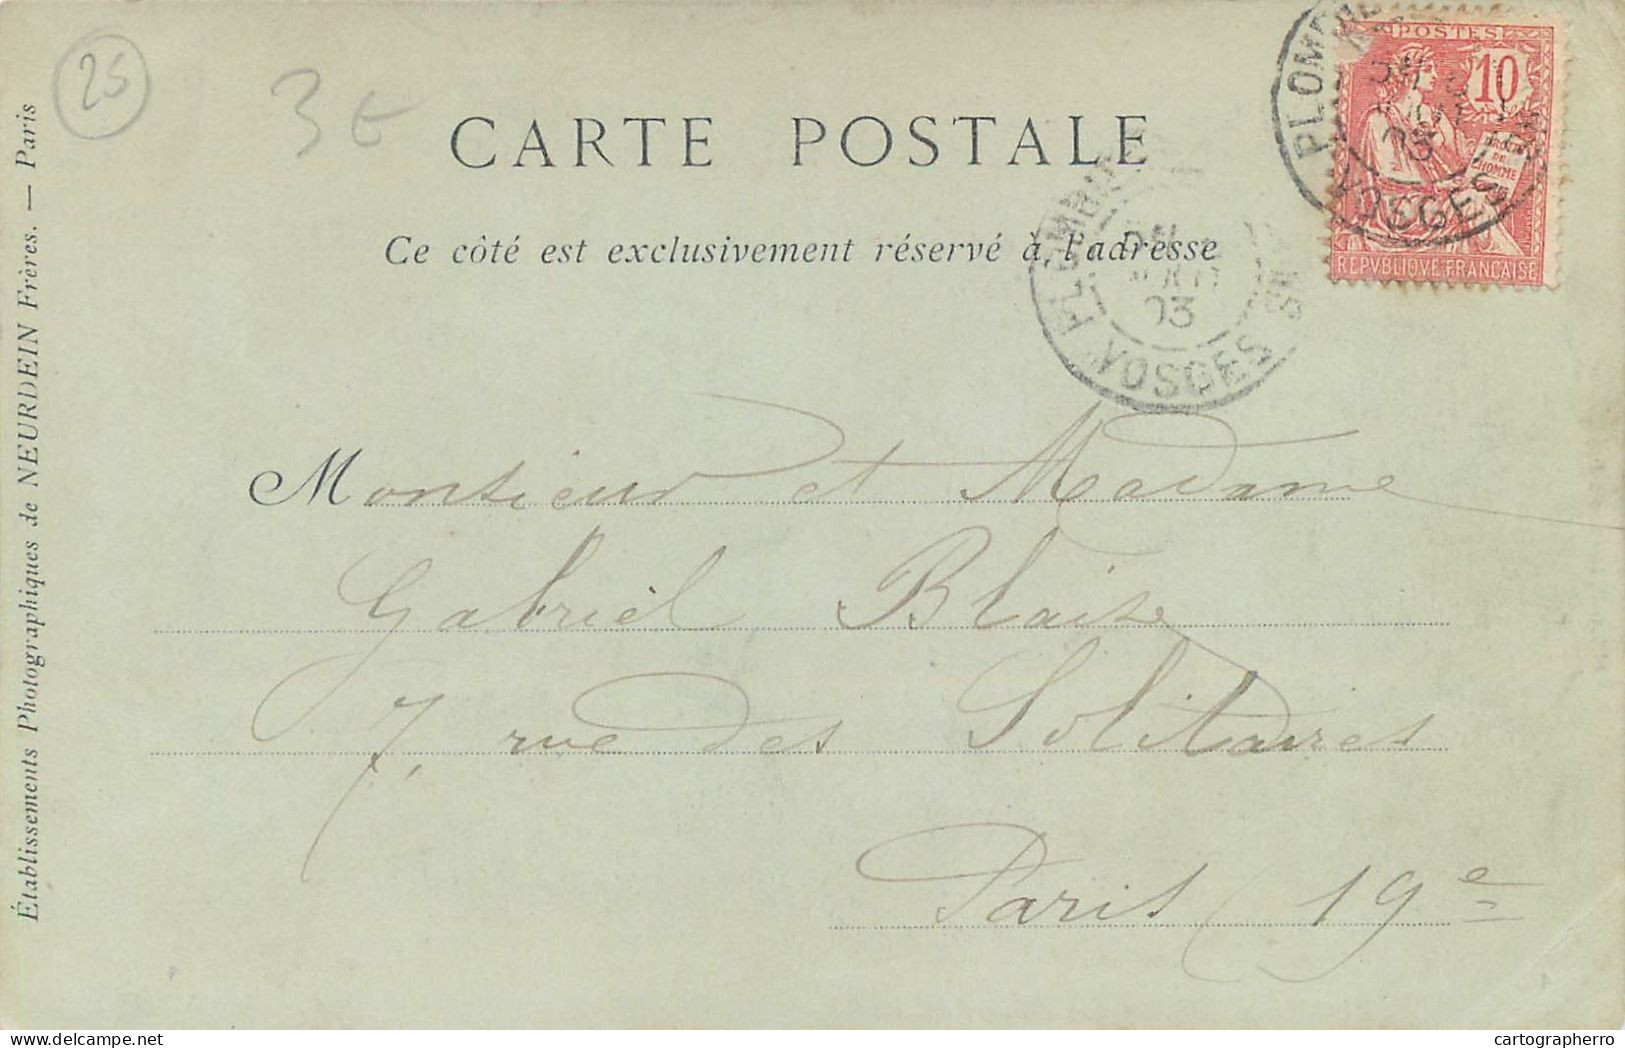 25
3 €
POSTES
10
DE
L'HOMME
REPVBLIQVE FRANÇAISE
VOSGES
03
CARTE POSTALE
Ce côté est exclusivement réservé à l'adresse
VOSGES
03
Monsieur et Madame
Gabriel Blaise
7, rue des Solitaires
Paris 19e
Établissements Photographiques de NEURDEIN Frères. — Paris
cartographerro